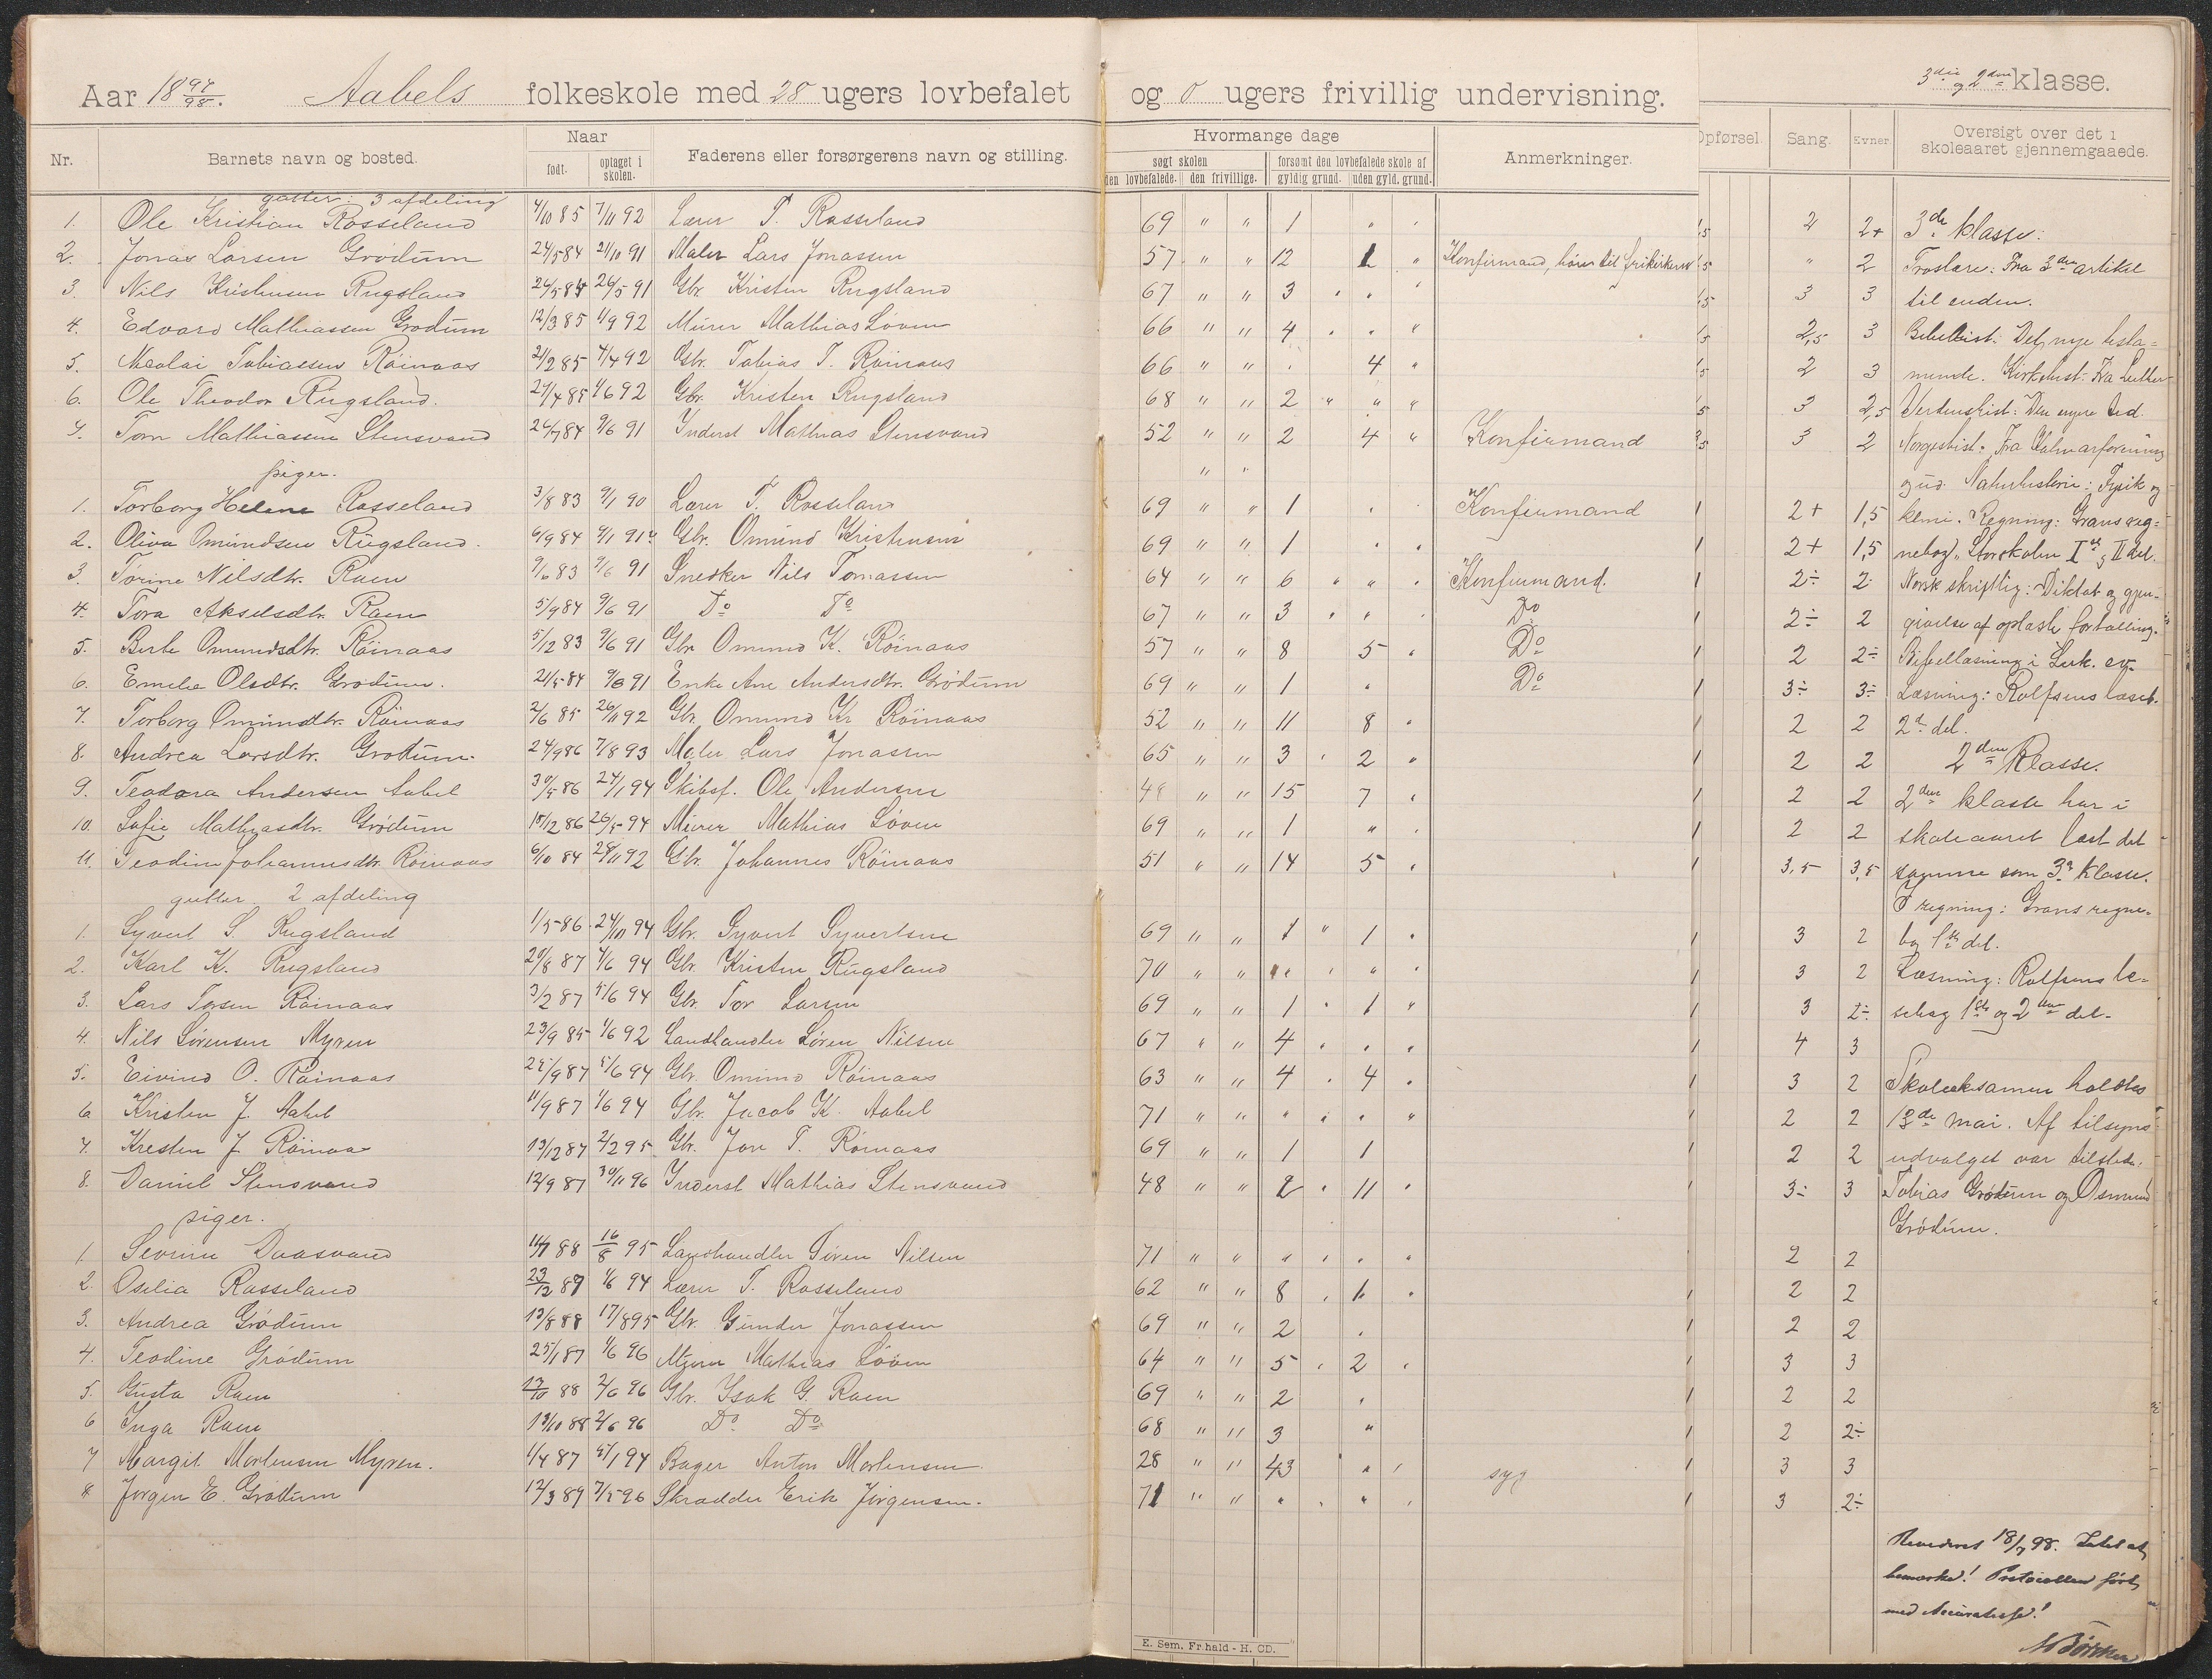 Aar 1897/98. Aabels folkeskole med 28 ugers lovbefalet og 0 ugers frivillig undervisning. 3die og 2den klasse.
Nr. Barnets navn og bosted. Naar født. optaget i skolen. Faderens eller forsørgerens navn og stilling.
Hvormange dage søgt skolen den lovbefalede. den frivillige. forsømt den lovbefalede skole af gyldig grund. uden gyld. grund. Anmerkninger.
Opførsel. Sang. Evner. Oversigt over det i skoleaaret gjennemgaaede.
gutter: 3 afdeling
1. Ole Kristian Rosseland 4/10 85 7/11 92 Lærer T. Rosseland 69 " " 1 2 2+
2. Jonas Larsen Grødum 24/5 84 21/10 91 Maler Lars Jonassen 57 " " 12 1 " Konfirmand, hører til frikirken " 2
3. Nils Kristensen Rugsland 26/5 84 26/5 91 Gbr. Kristen Rugsland 67 " " 3 3 3
4. Edvard Mathiassen Grødum 12/3 85 1/9 92 Murer Mathias Løven 66 " " 4 2,5 3
5. Nicolai Tobiassen Röinaas 21/2 85 4/4 92 Gbr. Tobias T. Röinaas 66 " " 4 2 3
6. Ole Theodor Rugsland. 27/4 85 1/6 92 Gbr. Kristen Rugsland 68 " " 2 " " " 3 2,5
7. Tom Mathiassen Stensvand 24/7 84 9/6 91 Inderst Mathias Stensvand 52 " " 2 4 " Konfirmand 3 2
piger.
1. Torborg Helene Rosseland 3/8 83 9/1 90 Lærer T. Rosseland 69 " " 1 Konfirmand 2+ 1,5
2. Oliva Omundsen Rugsland. 6/9 84 9/1 91 Gbr. Omund Kristensen 69 " " 1 2+ 1,5
3. Torine Nilsdtr. Raen 9/6 83 9/6 91 Snedker Nils Tomassen 64 " " 6 Konfirmand. 2÷ 2
4. Tora Akselsdtr. Raen 5/9 84 9/6 91 Do Do 67 " " 3 Do 2÷ 2
5. Berte Omundsdtr. Röinaas 5/12 83 9/6 91 Gbr Omund K. Röinaas 57 " " 8 5 Do 2 2÷
6. Emelie Olsdtr. Grødum. 21/5 84 9/6 91 Enke Ane Andersdtr. Grødum 69 " " 1 Do 3÷ 3÷
7. Torborg Omundsdtr. Röinaas 2/6 85 26/11 92 Gbr. Omund Kr Röinaas 52 " " 11 8 2 2
8. Andrea Larsdtr. Grødum. 24/9 86 7/8 93 Maler Lars Jonassen 65 " " 3 2 2 2
9. Teodora Andersen Aabel 30/5 86 24/1 94 Skibsf. Ole Andersen " " 15 7 2 2
10. Sofie Mathiasdtr. Grødum 15/12 86 26/5 94 Murer Mathias Løven 69 " " 1 " 2 2
11. Teodine Johannesdtr. Röinaas 6/10 84 28/11 92 Gbr. Johannes Röinaas 51 " " 14 5 3,5 3,5
gutter 2 afdeling
1. Syvert S. Rugsland 1/5 86 24/11 94 Gbr. Syvert Syvertsen 69 " " 1 " 1 3 2
2. Karl K. Rugsland 20/8 87 1/6 94 Gbr. Kristen Rugsland 70 " " 3 2
3. Lars Torsen Röinaas 3/2 87 5/6 94 Gbr. Tor Larsen 69 " " 1 1 " 3 2÷
4. Nils Sörensen Myren 23/9 85 1/6 92 Landhandler Sören Nilsen 67 " " 4 4 3
5. Eivind O. Röinaas 25/9 87 5/6 94 Gbr. Omund Röinaas 63 " " 4 4 3 2
6. Kristen J. Aabel 11/9 87 1/6 94 Gbr. Jacob K. Aabel 71 " " " " " 2 2
7. Kresten J. Röinaas 13/12 87 2/2 95 Gbr. Jon T. Röinaas 69 " " 1 1 2 2
8. Daniel Stensvand 12/9 87 30/11 96 Inderst Mathias Stensvand 48 " " 2 11 3÷ 3
piger.
1. Severine Daasvand 11/7 88 16/8 95 Landhandler Sören Nilsen 71 " " 2 2
2. Oselia Rosseland 23/12 87 1/6 94 Lærer T. Rosseland 62 " " 8 1 2 2
3. Andrea Grödum 13/8 88 17/8 95 Gbr. Gunder Jonassen 69 " " 2 2 2
4. Teodine Grödum 25/1 87 1/6 96 Mathias Löven 64 " " 5 2 3 3
5. Gusta Raen 13/10 88 2/6 96 Gbr. Isak G. Raen 69 " " 2 2 2
6 Inga Raen 13/10 88 2/6 96 Do Do 68 " " 3 " 2 2÷
7 Margit Mortensen Myren. 1/4 87 5/1 94 Bager Anton Mortensen 28 " " 43 syg 3 3
8 Jørgen E. Grødum 12/3 89 7/5 96 Skrædder Erik Jörgensen. 71 " " 3 2÷
3de klasse:
Troslære: Fra 3die artikel
til enden.
Bibelhist: Det nye testa=
mente. Kirkehist: Fra Luther
Verdenshist: Den nyere tid.
Norgeshist: Fra Kalmarforening
ud. Naturhistorie: Fysik og
kemi. Regning: Grans reg=
nebog, Storskolen I og II del.
Norsk skriftlig: Diktat og gjen-
givelse af oplæste fortælling.
Bibellæsning i Luk. ev.
Læsning: Rolfsens læseb.
2den del.
2den Klasse.
2den klasse har i
skoleaaret læst det
samme som 3die klasse.
I regning: Grans regne-
bog 1ste del.
Læsning: Rolfsens læ=
sebog 1ste og 2den del.
Skoleeksamen holdtes
13de mai. Af tilsyns-
udvalget var tilstede:
Tobias Grødum og Osmund
Grödum.
Revideret 18/7 98. Intet at
bemærke! Protocollen ført
med Accuratesse!
E. Sem. Fr.hald - H. CD.